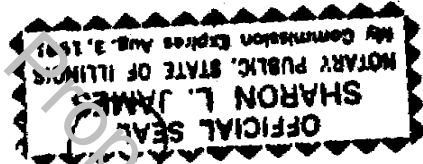 OFFICIAL SEAL
SHARON L. JAMES
NOTARY PUBLIC, STATE OF ILLINOIS
My Commission Expires Aug. 3,
Prop